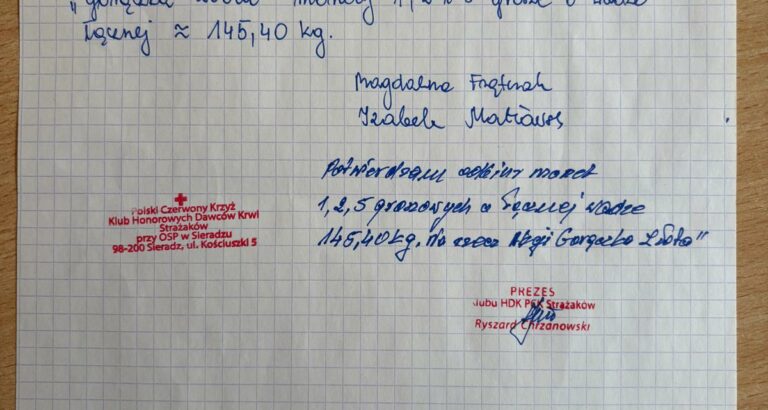 "gorączka złota" monety 1, 2 i 5 grosze o wadze
łącznej ≈ 145,40 kg.
Magdalena Frątczak
Izabela Matiaws
Potwierdzam odbiór monet
1, 2, 5 groszowych o łącznej wadze
145,40 kg. na rzecz Akcji Gorączka Złota"
Polski Czerwony Krzyż
Klub Honorowych Dawców Krwi
Strażaków
przy OSP w Sieradzu
98-200 Sieradz, ul. Kościuszki 5
PREZES
lubu HDK PCK Strażaków
Ryszard Chrzanowski